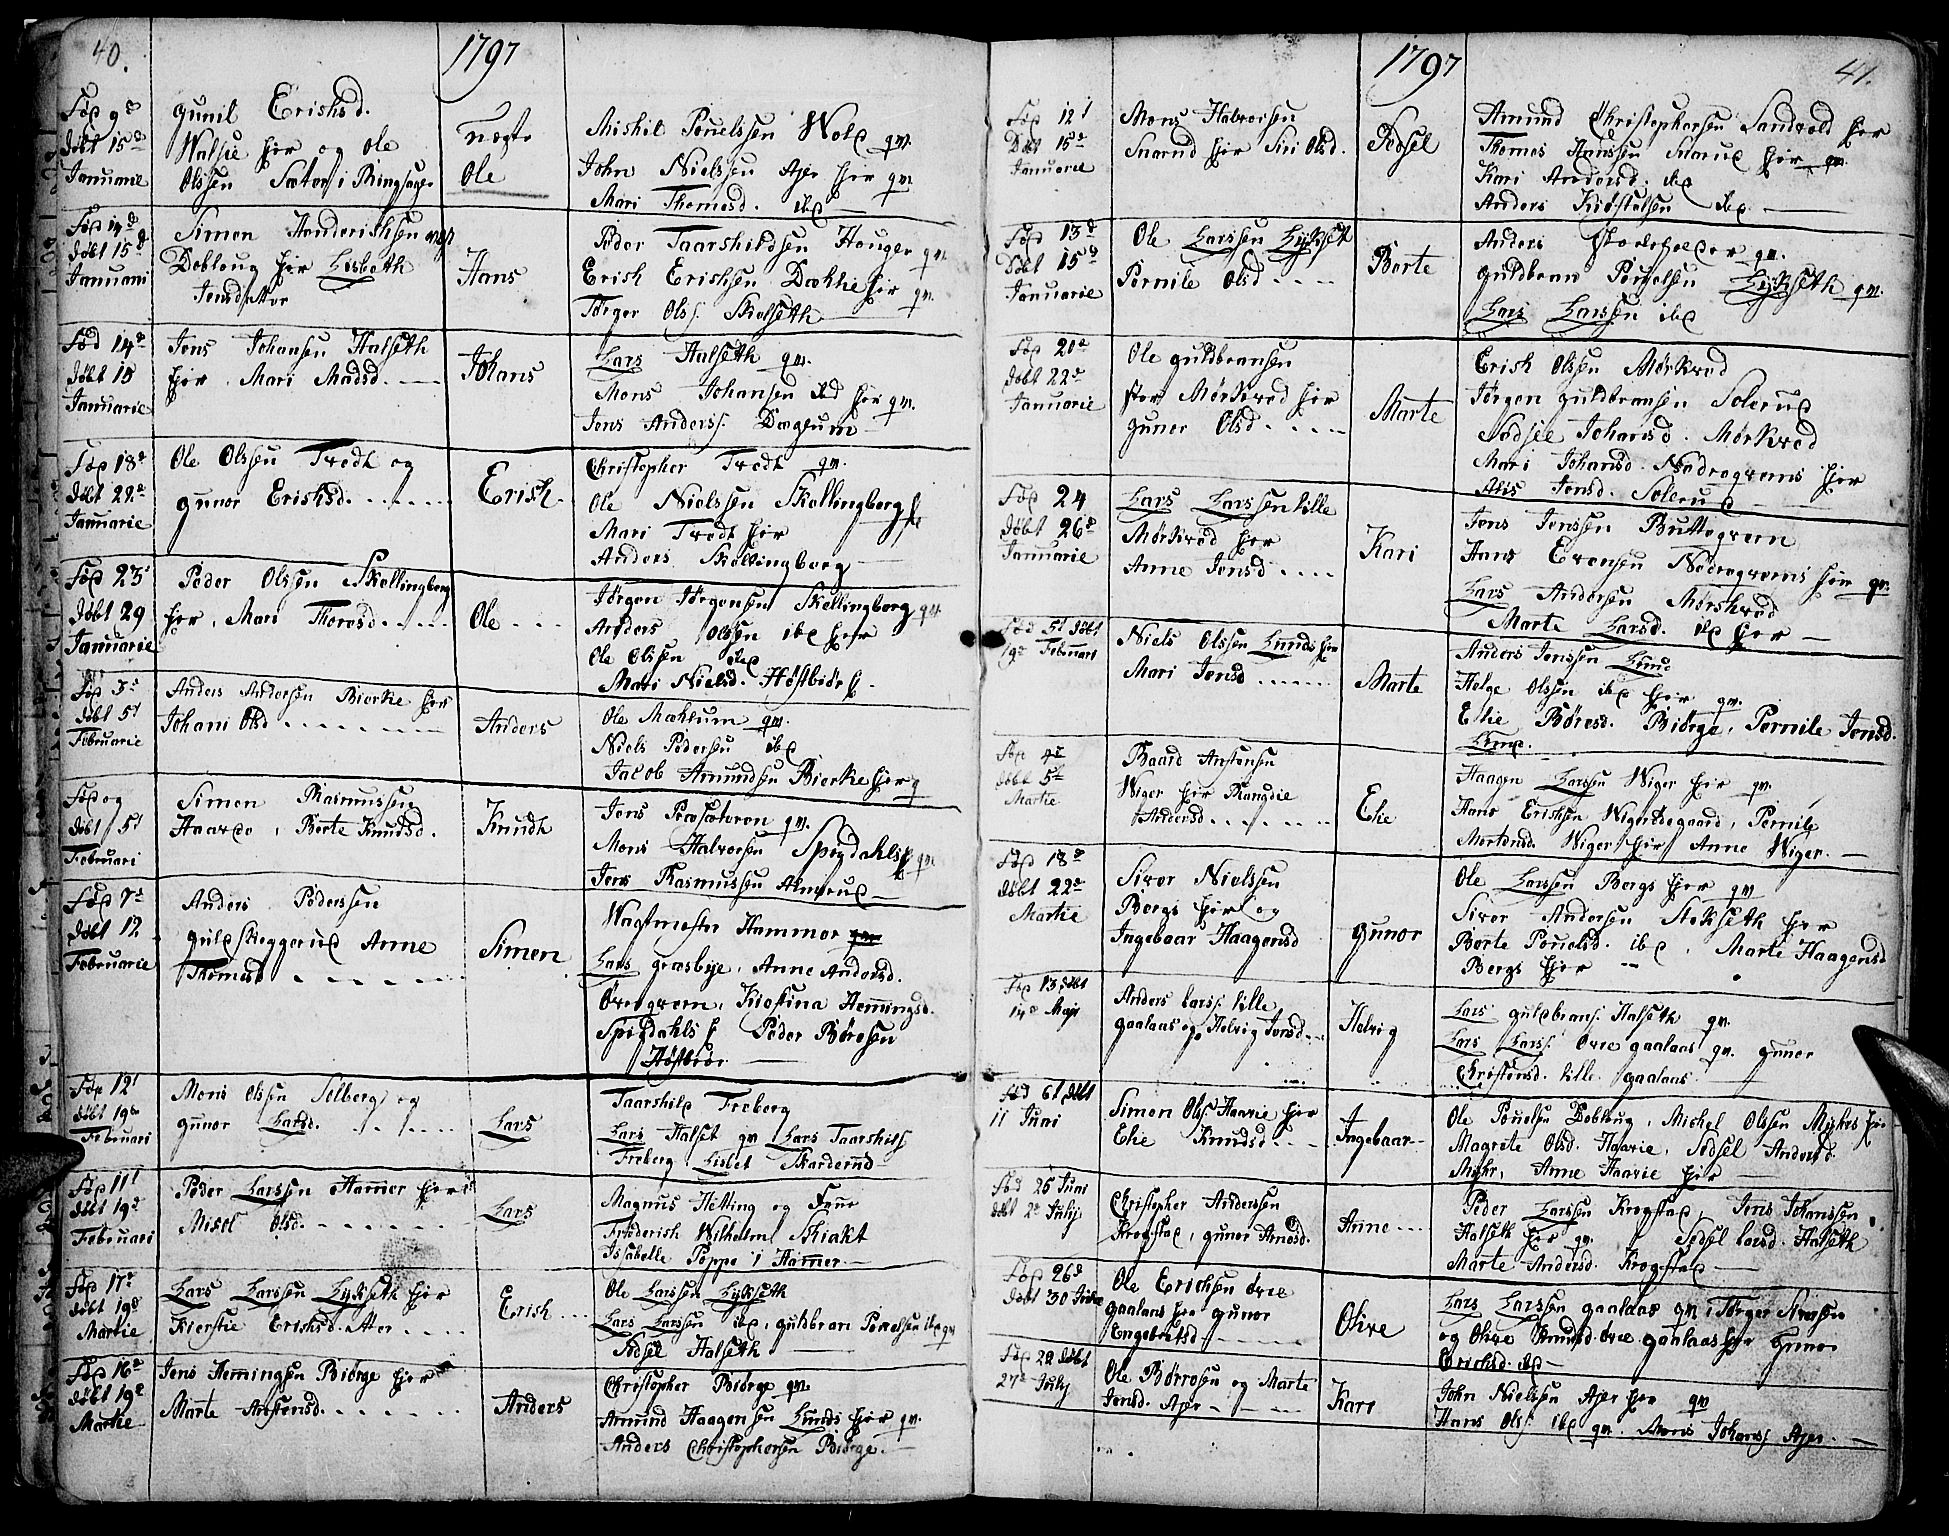 40.
1797
Fød 9d
Gunil Erichsd.
Døbt 15d
Walsie hjer og Ole
Januarie
Olssen Sæter i Ringsager
uegte
Ole
Michil Pouelssen Wold gm.
John Nielssen Ajer hjer gm
Mari Thomesd. ibd
Fød 14d
Døbt 15d
Januari
Simon Henderichsen
Dobloug hjer Lisbeth
Jensdatter
Hans
Peder Taarshildsen Houger gm.
Erich Erichsen Dækkie hjer gm.
Tørger Olss. Skolseth
Fød 14d
Døbt 15
Januarie
Jens Johansen Halseth
hjer. Mari Madsd.
Johans
Lars Halseth gm.
Mons Johansen ibd hjer gm.
Jens Anderss. Dæglum
Fød 18d
Døbt 22d
Januarie
Ole Olssen Trodt og
Gunor Erichsd.
Erich
Christopher Trodt gm.
Ole Nielssen Skollingberg
Mari Trodt hjer
Anders Skollingberg
Fød 23
Døbt 29
Januarie
Peder Olssen Skollingberg
hjer. Mari Thoresd.
Ole
Jørgen Jørgensen Skollingberg gm
Anders Olssen ibd hjer
Ole Olssen ibd
Mari Nielsd. Høstbiør
Fød 3d
Døbt 5t
Februarie
Anders Andersen Bierke hjer
Johani Olsd
Anders
Ole Mæhlum gm.
Niels Pedersen ibd
Jacob Amundsen Bierke hjer g
Fød og
Døbt 5t
Februari
Simon Rasmussen
Berte Knudsd.
Knudt
Jens Præsæteren gm.
Mons Halvorsen Spigdahls gm.
Jens Rasmussen Almerud
Fød 7d
Døbt 12
Februarie
Anders Pederssen
Guldskoggerud Anne
Thomesd
Simen
Wagtmester Hammer
Lars Græsbye, Anne Andersd.
Øvregreen, Kiestina Hemmingsd.
Spigdahls Peder Børesen
Høstbiør
Fød 12t
Døbt 19d
Februari
Mons Olssen Solberg og
Gunor Larsd.
Lars
Taarshild Freberg
Lars Halset gm Lars Taarshils
Freberg, Lisbet Skarderud
Fød 11t
Døbt 19d
Februari
Peder Larssen Hammer hjer
Misel Olsd.
Lars
Magnus Hetting og Frue
Friderich Wilhelm Skiakt
Issabelle Poppe i Hammer
Fød 17d
Døbt 19d
Martie
Lars Larssen Lykseth hjer
Kierstie Erichsdatter
Erich
Ole Larssen Lykseth
Lars Larssen ibd, Guldbran Pouelsen ibd gm
Sidsel Halseth
Fød 16d
Døbt 19d
Martie
Jens Hemmingsen Biørge hjer
Marte Anstensd.
Anders
Christopher Biørge gm.
Amund Haagensen Lunds hjer gm.
Anders Christophersen Biørge.
1797
41.
Fød 12t
Døbt 15d
Januarie
Mons Halvorsen
Snarud hjer Siri Olsd.
Sidsel
Amund Christophersen Sandvold hjer
Thomes Hanssen Solerud hjer gm.
Kari Andersd. ibd
Anders Kiøstelsen ibd
Fød 13d
Døbt 15d
Januarie
Ole Larssen Lykset
Pernile Olsd
Berte
Anders gm.
Guldbran Pouelsen Lykseth gm.
Lars Larssen ibd
Fød 20d
Døbt 22d
Januarie
Ole Guldbransen
stor Mørkved hjer
Guner Olsd
Marte
Erich Olssen Mørkved
Jørgen Guldbransen Solerud
Sidsel Johansd. Mørkved
Mari Johansd. Nedregreens hjer
Alis Jensd. Solerud
Fød 24
Døbt 26d
Januarie
Lars Larssen lille
Mørkved hjer
Anne Jensd
Kari
Jens Jenssen Buttegreen
Hans Evensen Nedregreens hjer gm.
Lars Andersen Mørkved
Marte Larsd. ibd hjer
Fød 5t Døbt
19d Februari
Niels Olssen Lunds hjer
Mari Jensd
Marte
Anders Jenssen Lund
Helge Olssen ibd hjer gm.
Elie Børesd. Biørge, Pernile Jensd.
Lund.
Fød 4d
Døbt 5t
Martie
Baard Anstensen
Wiger hjer Rangdie
Andersd
Elie
Haagen Larssen Wiger hjer gm.
Hans Erichsen Wigerødegaard, Pernile
Mortensd. Wiger hjer Anne Wiger.
Fød 18d
Døbt 22d
Martie
Siver Nielssen
Bergs hjer og
Ingebaar Haagensd
Gunor
Ole Larssen Bergs hjer gm
Siver Andersen Stokseth hjer
Berte Pouelsd. ibd, Marte Haagensd
Bergs hjer
Fød 13 Døbt
14d Maji
Anders Larss. lille
Gaalaas og Helvig Jensd.
Helvig
Lars Guldbrans. Halseth gm.
Lars Larss. Øvre Gaalaas gm. Gunor
Christensd. lille Gaalaas
Fød 6t Døbt
11 Juni
Simon Olss. Haarie hjer
Elie Knudsd
Ingebaar
Ole Pouelsen Dobloug, Michel Olssen Myhrs hjer
Magrete Olsd. Haarie, Sidsel Andersd.
Myhr, Anne Haarie hjer
Fød 25 Juni
Døbt 2d Julij
Christopher Anderssen
Krogstad, Gunor Arnesd.
Anne
Peder Larssen Krogstad, Jens Johanssen
Halseth hjer gm. Sidsel Larsd. Halseth
Marte Andersd. Krogstad
Fød 26d
Døbt 30 Julie
Ole Erichsen Øvre
Gaalaas hjer Gunor
Engebretsd
Olive
Lars Larssen Gaalaas gm, Tørger Siversen
og Olive Amundsd. Øvre Gaalaas hjer Gunor
Erichsd. ibd
Fød 22 Døbt
27d Julij
Ole Børresen og Marte
Jensd. Ajer
Kari
John Nielssen Ajer hjer gm
Hans Olss. ibd gm. Mons Johanss. Ajer.